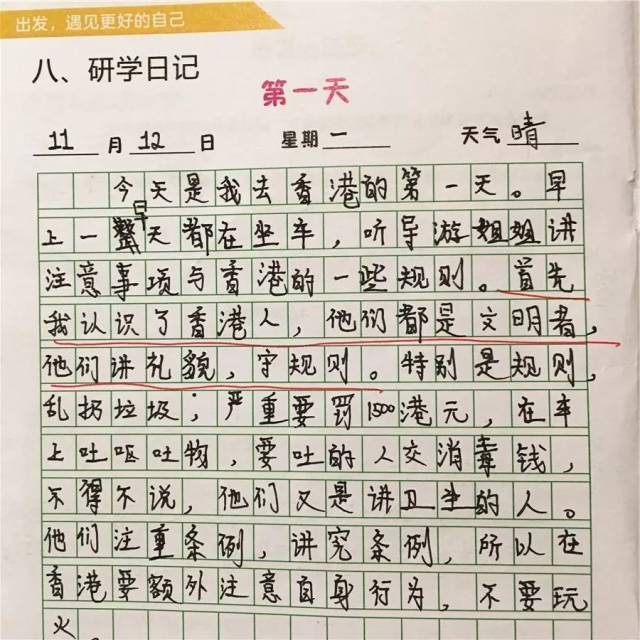 出发，遇见更好的自己
八、研学日记
第一天
11月12日 星期一 天气晴
今天是我去香港的第一天。早
早
上一整天都在坐车，听导游姐姐讲
注意事项与香港的一些规则。首先
我认识了香港人，他们都是文明者，
他们讲礼貌，守规则。特别是规则，
乱扔垃圾；严重要罚1500港元，在车
上吐呕吐物，要吐的人交消毒钱，
不得不说，他们又是讲卫生的人。
他们注重条例，讲究条例，所以在
香港要额外注意自身行为，不要玩
火。